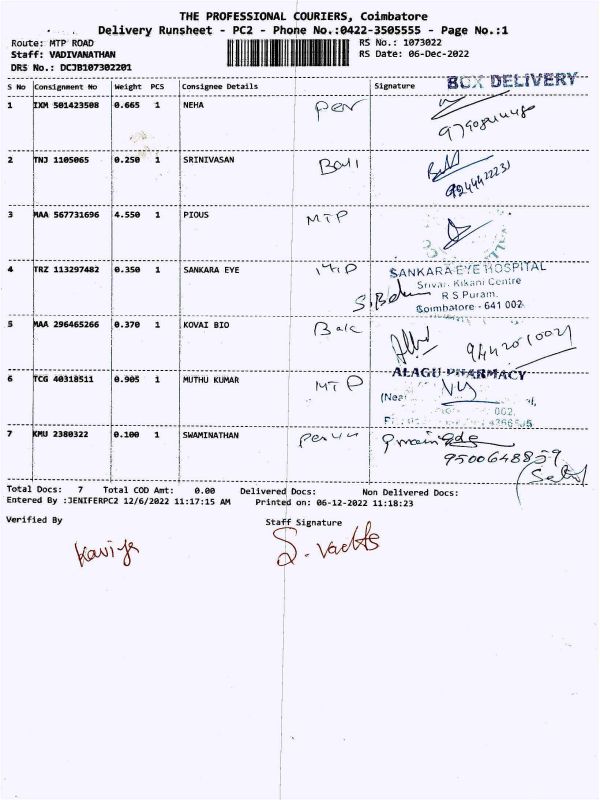 THE PROFESSIONAL COURIERS, Coimbatore
Delivery Runsheet - PC2 - Phone No.:0422-3505555 - Page No.:1
Route: MTP ROAD RS No.: 1073022
Staff: VADIVANATHAN RS Date: 06-Dec-2022
DRS No.: DCJB107302201
BOX DELIVERY
S No Consignment No Weight PCS Consignee Details Signature
1 IXM 501423508 0.665 1 NEHA
2 TNJ 1105065 0.250 1 SRINIVASAN
9244422231
3 MAA 567731696 4.550 1 PIOUS MTP
4 TRZ 113297482 0.350 1 SANKARA EYE MTP SANKARA EYE HOSPITAL
Srivari Kikani Centre
R S Puram,
Coimbatore - 641 002
5 MAA 296465266 0.370 1 KOVAI BIO
9442010021
ALAGU PHARMACY
6 TCG 40318511 0.905 1 MUTHU KUMAR MTP
(Near
002,
7 KMU 2380322 0.100 1 SWAMINATHAN
9500648859
Total Docs: 7 Total COD Amt: 0.00 Delivered Docs: Non Delivered Docs:
Entered By :JENIFERPC2 12/6/2022 11:17:15 AM Printed on: 06-12-2022 11:18:23
Verified By Staff Signature
Kaviya